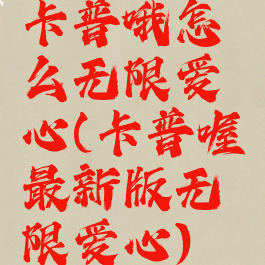 卡普哦怎
么无限爱
心(卡普喔
最新版无
限爱心)